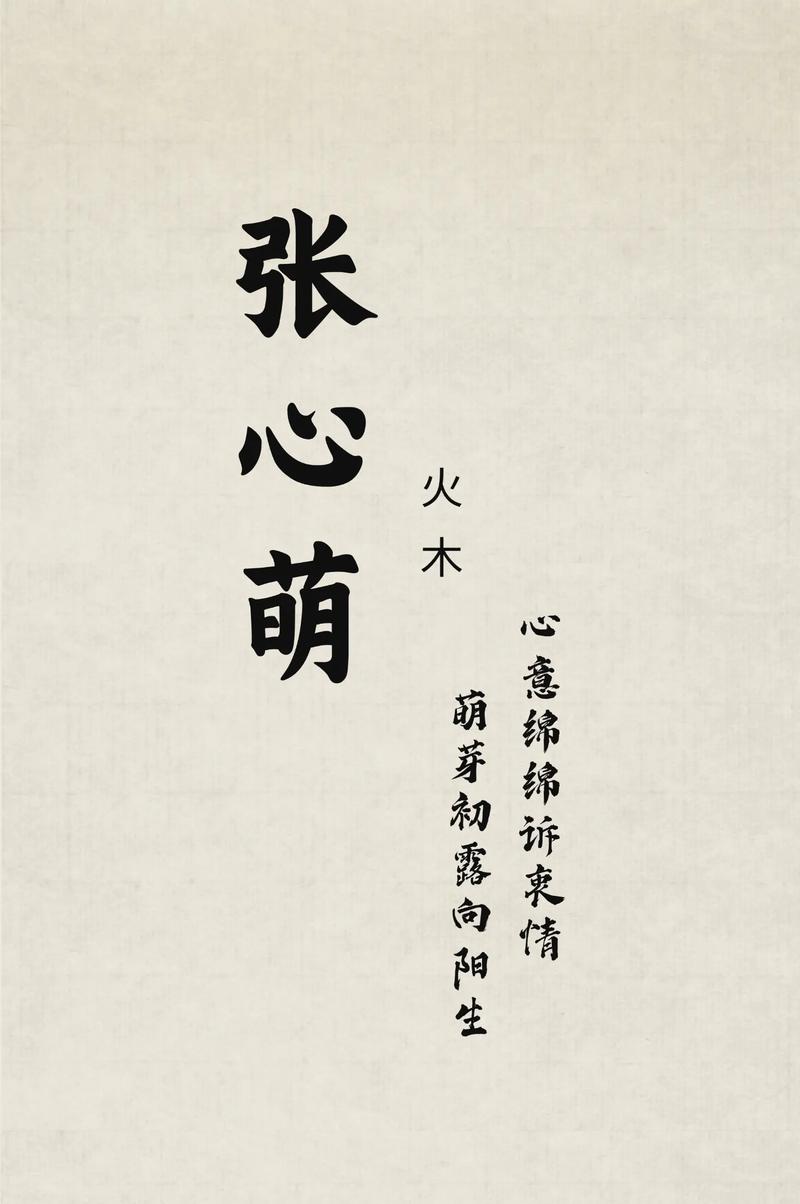 张心萌
火木
心意绵绵诉衷情
萌芽初露向阳生